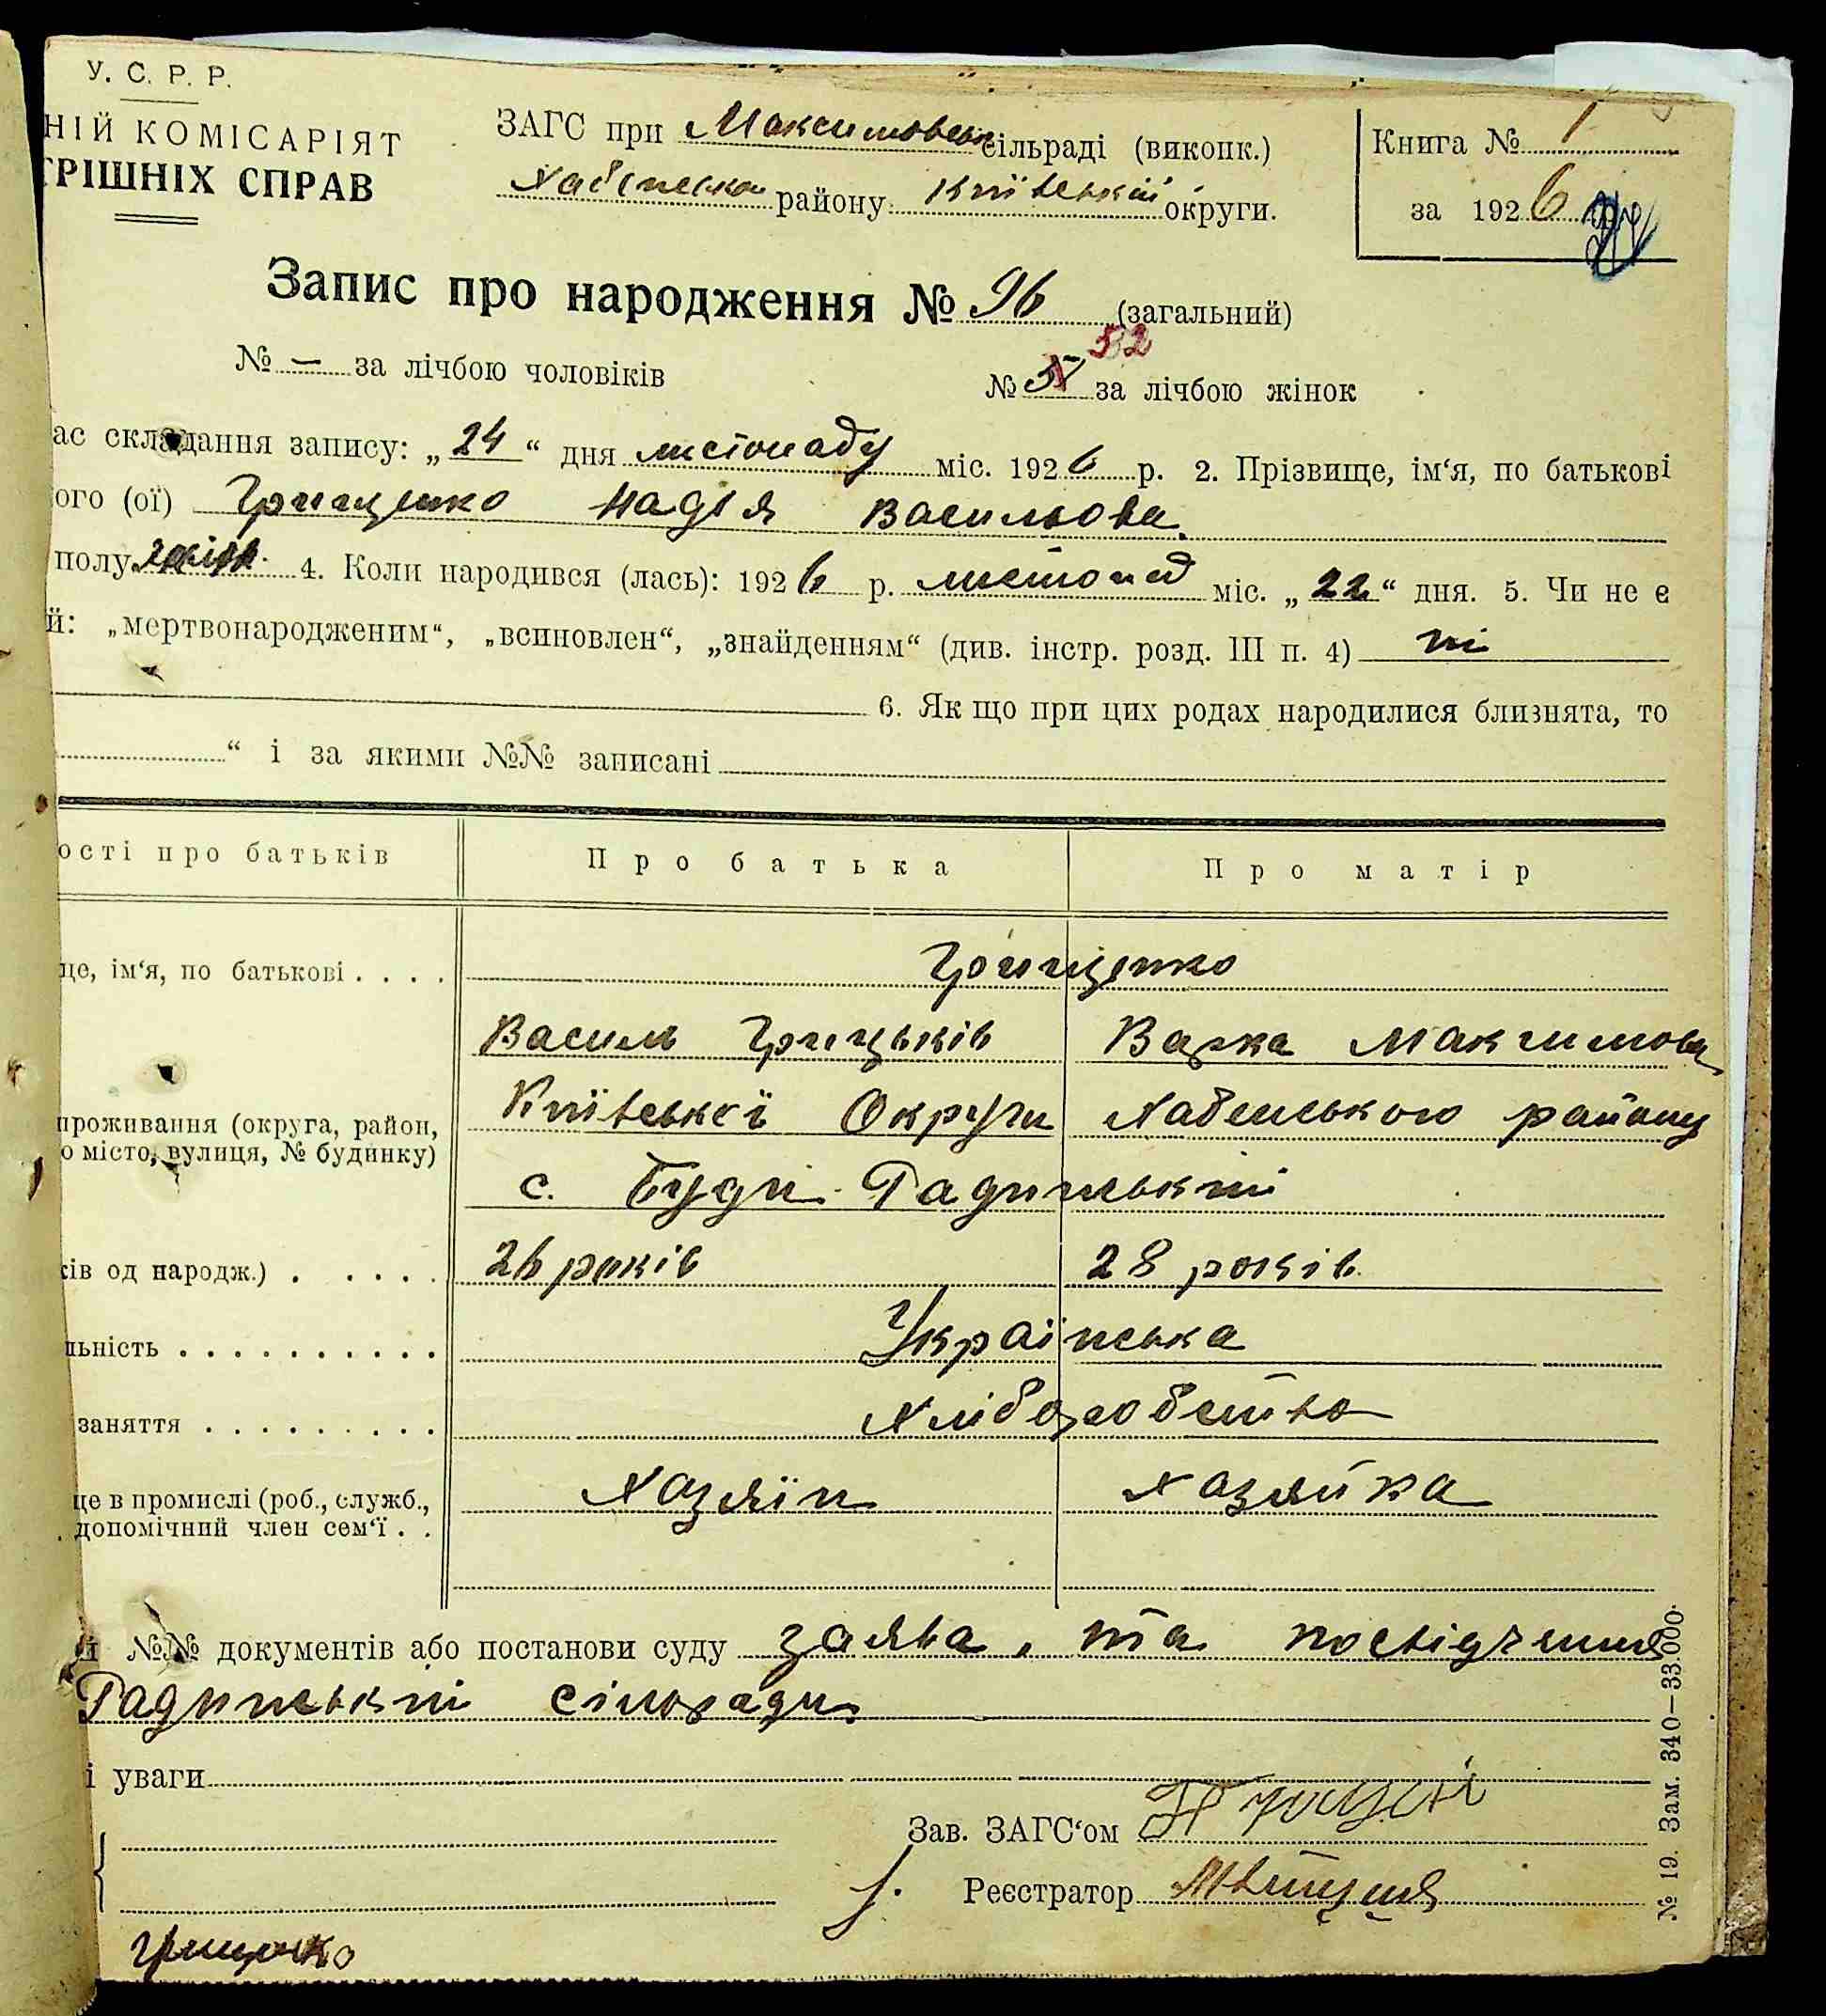 У. С. Р. Р.
НІЙ КОМІСАРІЯТ
ТРІШНІХ СПРАВ
ЗАГС при Максимовській сільраді (виконк.)
Хабенська району Київській округи.
Книга № 1
за 1926
Запис про народження № 96 (загальний)
52
№ — за лічбою чоловіків № за лічбою жінок
ас складання запису: „24“ дня листопаду міс. 1926 р. 2. Прізвище, ім‘я, по батькові
ого (ої) Грищенко Надія Васильова
полу жін. 4. Коли народився (лась): 1926 р. листопад міс. „22“ дня. 5. Чи не є
й: „мертвонародженим“, „всиновлен“, „знайденням“ (див. інстр. розд. III п. 4) ні
6. Як що при цих родах народилися близнята, то
“ і за якими №№ записані
ості про батьків Про батька Про матір
це, ім‘я, по батькові . . . . Грищенко
Василь Грицьків Варка Максимова
проживання (округа, район,
о місто, вулиця, № будинку)
Київської Округи Хабенського району
с. Буди Радинській
ків од народж.) . . . . . 26 років 28 років
льність . . . . . . . . . . Українська
заняття . . . . . . . . . Хліборобство
це в промислі (роб., служб.,
допомічний член сем‘ї . .
Хазяїн Хазяйка
й №№ документів або постанови суду заява, та посвідчення
Радинській сільради
і уваги
Зав. ЗАГС‘ом
Реєстратор
Грищенко
№ 19. Зам. 340—33.000.